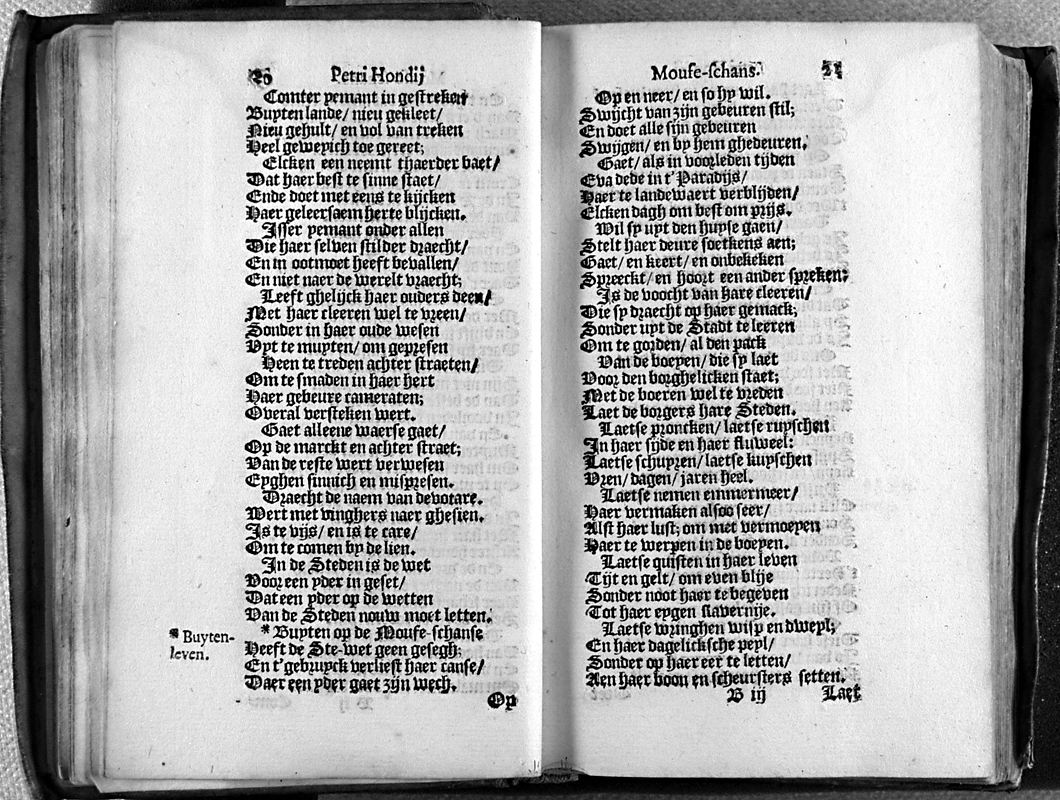 20 Petri Hondij
Comter yemant in gestreken
Buyten lande/ nieu gekleet/
Nieu gehult/ en vol van treken
Heel geweyich toe gereet;
Elcken een neemt thaerder baet/
Dat haer best te sinne staet/
Ende doet met eens te kijcken
Haer geleersaem herte blijcken.
Isser yemant onder allen
Die haer selven stilder draecht/
En in ootmoet heeft bevallen/
En niet naer de werelt vraecht;
Leeft ghelijck haer ouders deen/
Met haer cleeren wel te vreen/
Sonder in haer oude wesen
Uyt te muyten/ om gepresen
Heen te treden achter straeten/
Om te smaden in haer hert
Haer gebeure cameraten;
Overal versteken wert.
Gaet alleene waerse gaet/
Op de marckt en achter straet;
Van de reste wert verwesen
Eyghen sinnich en mispresen.
Draecht de naem van devotare.
Wert met vinghers naer ghesien.
Is te vijs/ en is te care/
Om te comen by de lien.
In de Steden is de wet
Voor een yder in geset/
Dat een yder op de wetten
Van de Steden nouw moet letten.
* Buyten op de Moufe-schanse
Heeft de Ste-wet geen gesegh;
En t'gebruyck verliest haer canse/
Daer een yder gaet zijn wech.
* Buyten-
leven.
Op
Moufe-schans. 21
Op en neer/ en so hy wil.
Swijcht van zijn gebeuren stil;
En doet alle sijn gebeuren
Swijgen/ en by hem ghedeuren.
Gaet/ als in voorleden tijden
Eva dede in t'Paradijs/
Haer te landewaert verblijden/
Elcken dagh om best om prijs.
Wil sy uyt den huyse gaen/
Stelt haer deure soetkens aen;
Gaet/ en keert/ en onbekeken
Spreeckt/ en hoort een ander spreken:
Is de voocht van hare cleeren/
Die sy draecht op haer gemack;
Sonder uyt de Stadt te leeren
Om te gorden/ al den pack
Van de boeyen/ die sy laet
Voor den borghelicken staet;
Met de boeren wel te vreden
Laet de borgers hare Steden.
Laetse proncken/ laetse ruyschen
In haer sijde en haer fluweel:
Laetse schuyren/ laetse kuyschen
Uren/ dagen/ jaren heel.
Laetse nemen emmermeer/
Haer vermaken alsoo seer/
Alst haer lust; om met vermoeyen
Haer te werpen in de boeyen.
Laetse quisten in haer leven
Tijt en gelt/ om even blije
Sonder noot haer te begeven
Tot haer eygen slavernije.
Laetse wringhen wisp en dweyl;
En haer dagelicksche peyl/
Sonder op haer eer te letten/
Aen haer boon en scheursters setten.
B iij Laet